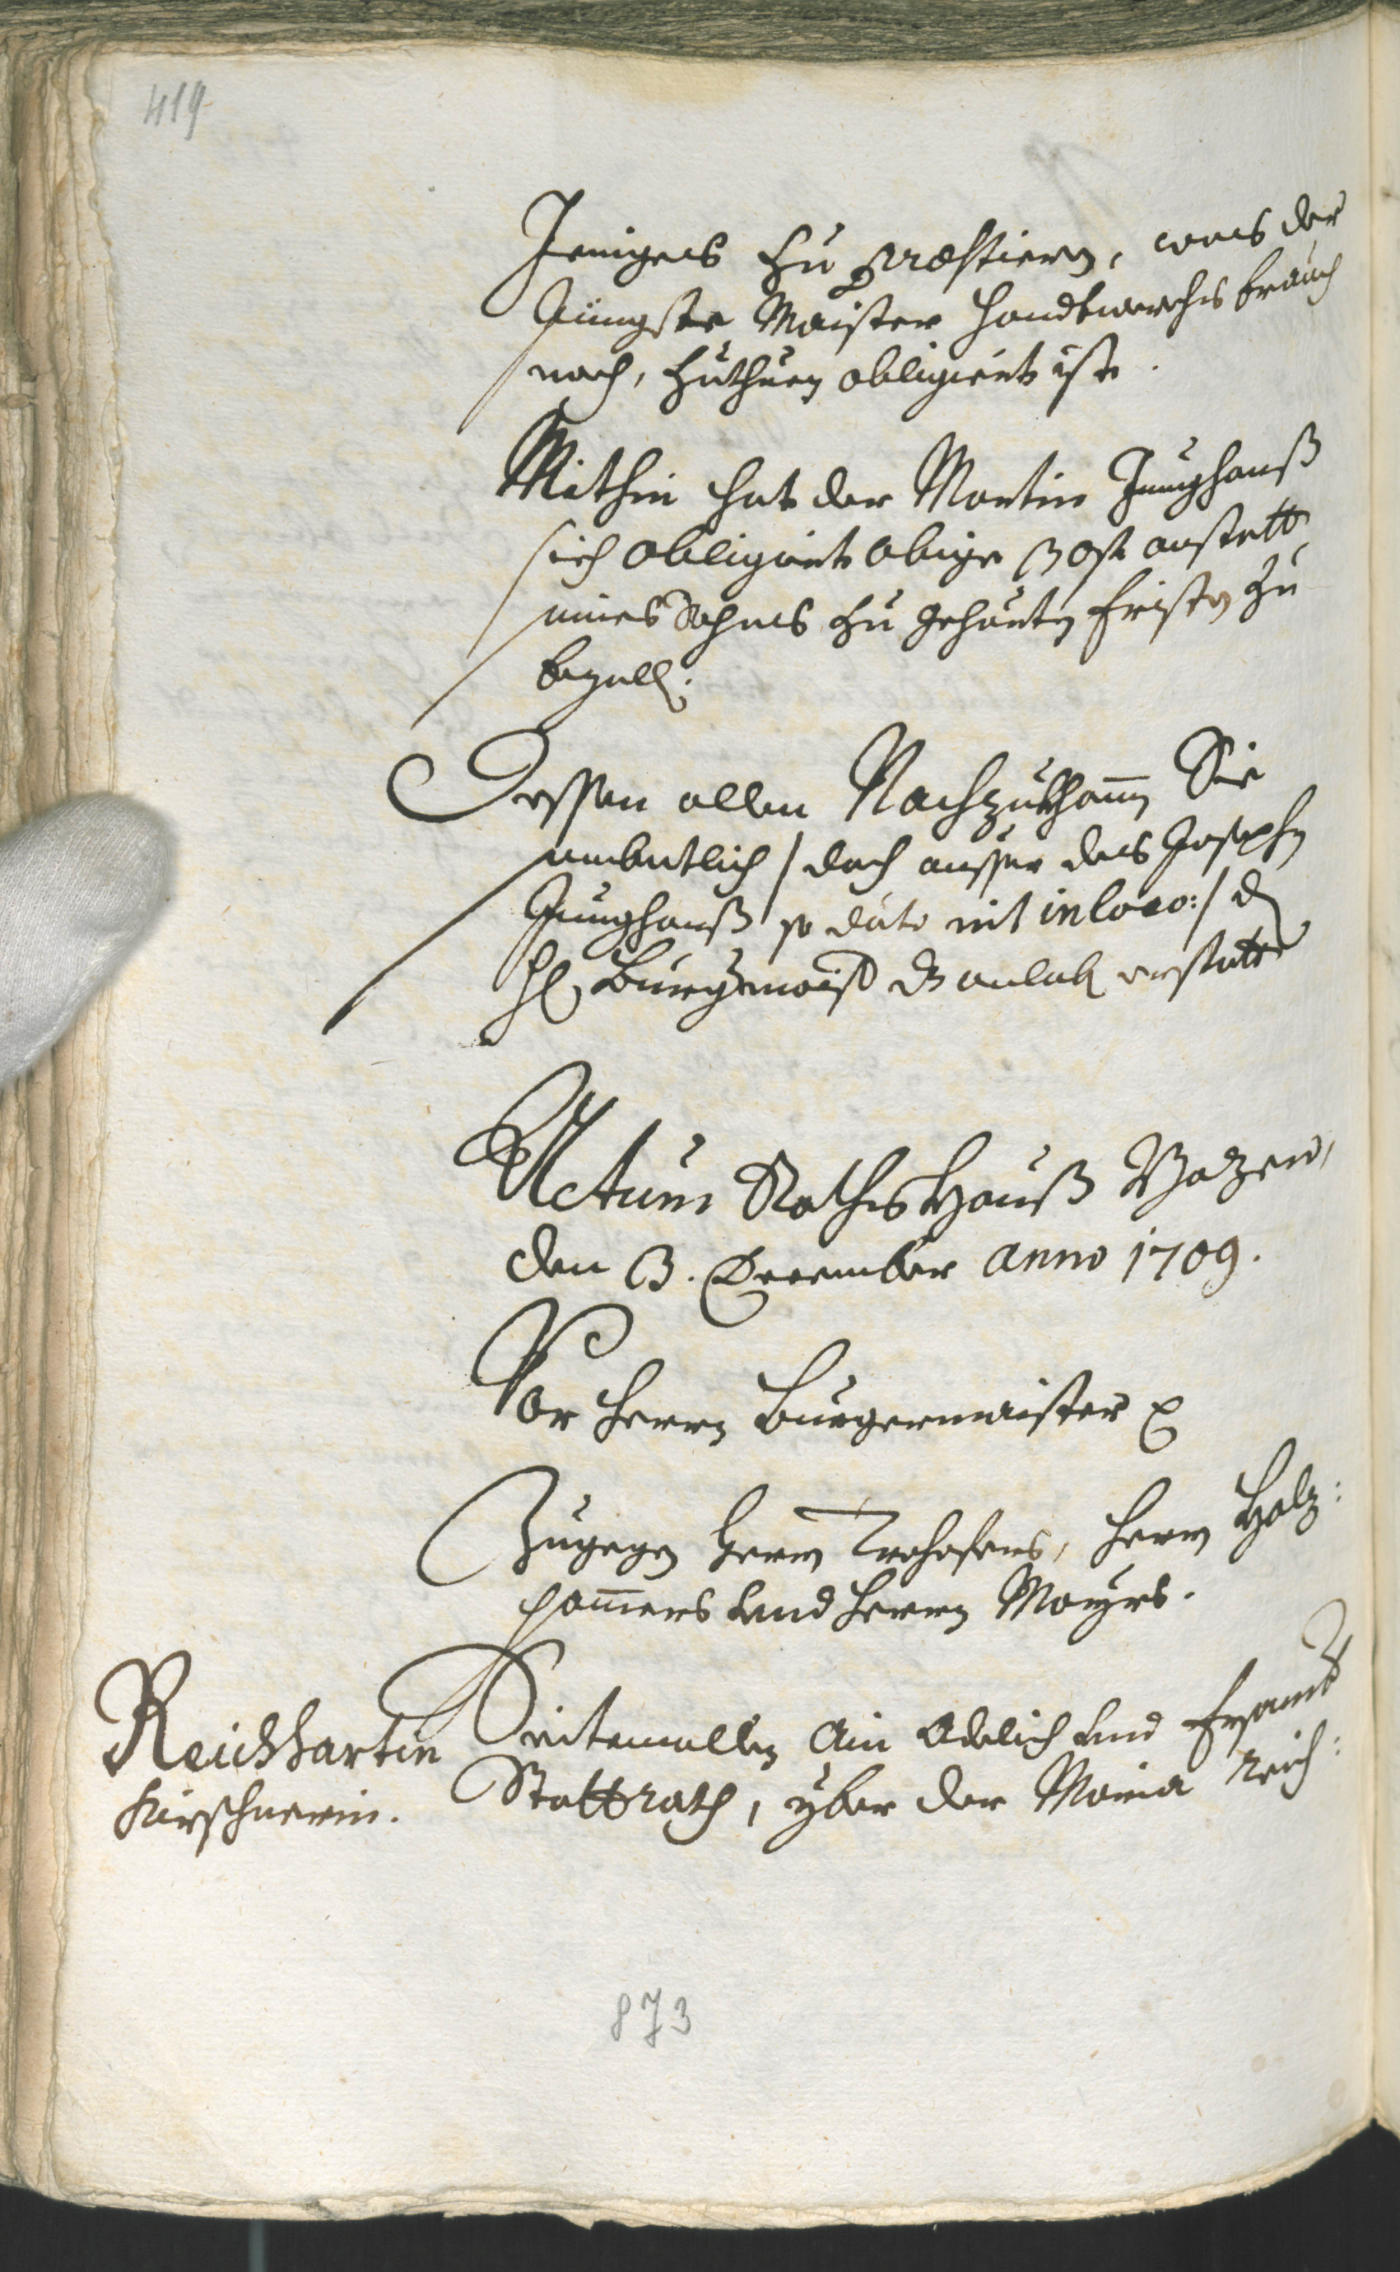 419
Jeniges zu præstiern, was der
Jüngste Maister Handtwerchs brauch
nach, zuthuen obligiert ist.
Mithin hat der Martin Junghanß
sich obligiert obige Post anstatt
seines Sohns zu gehörten Fristen zu
bezalln.
Dessen allen Nachzukhomen Sie
nambentlich / doch ausser des Josephn
Junghanß so dato nit in loco: / dem
Hl Burgermaister dz anlob erstatte
Actum Rathshauß Bozen,
den 3. December anno 1709.
Vor Herrn Burgermaister
Zugegen Herrn Trehofers, Herrn Holz:
hamers und Herrn Mayrs.
Reichhartin
Kürschnerin.
Seitemallen Ain Adelich und Ersamb
Stattrath, yber der Maria Reich:
873